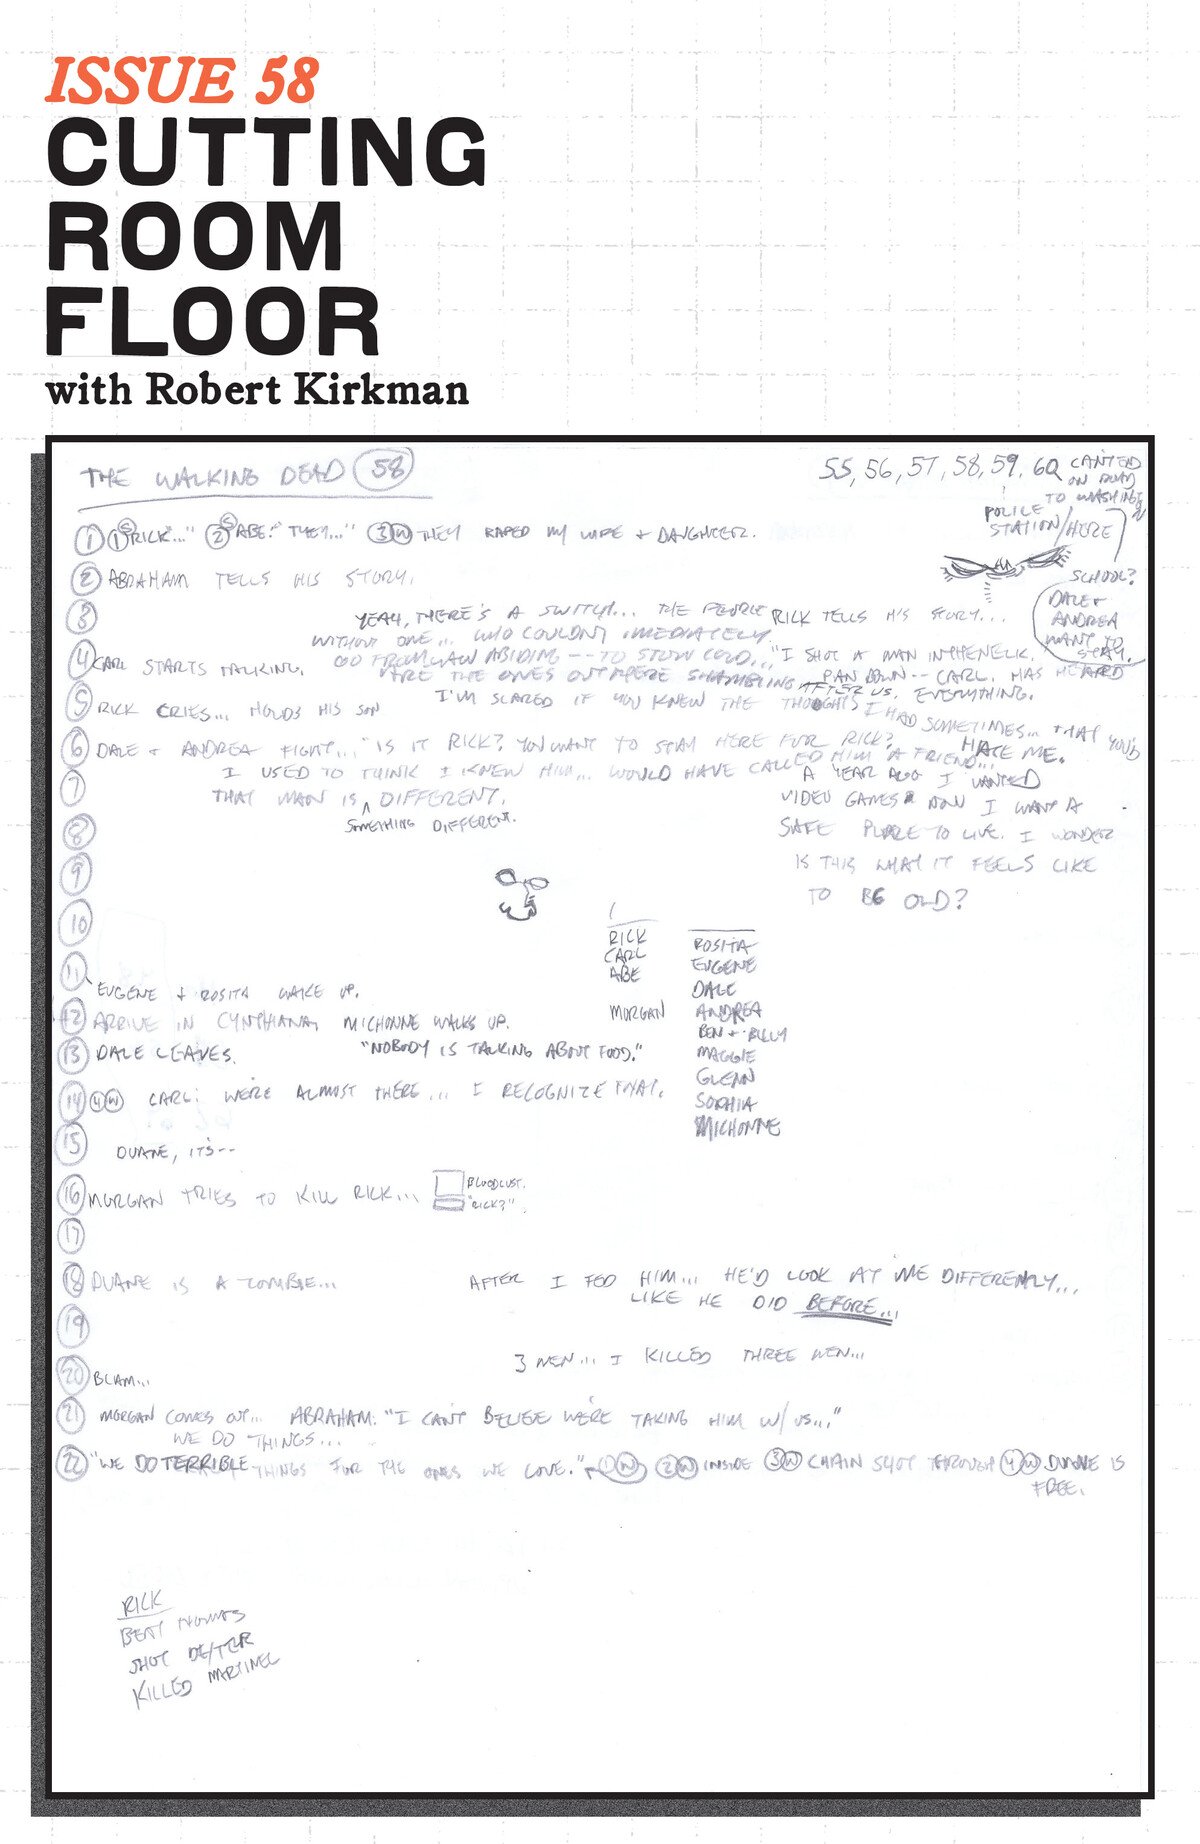 ISSUE 58
CUTTING
ROOM
FLOOR
with Robert Kirkman
THE WALKING DEAD 58
55, 56, 57, 58, 59, 60
ON ROAD
TO WASHINGTON
POLICE
STATION/HERE
SCHOOL?
DALE +
ANDREA
WANT TO
STAY.
1 1S "RICK..." 2S "ABE? THEY..." 3W THEY RAPED MY WIFE + DAUGHTER.
2 ABRAHAM TELLS HIS STORY.
3 YEAH, THERE'S A SWITCH... THE PEOPLE
WITHOUT ONE... WHO COULDN'T IMEDIATELY
GO FROM LAW ABIDING -- TO STONE COLD...
ARE THE ONES OUT THERE SHAMBLING AFTER US.
RICK TELLS HIS STORY...
"I SHOT A MAN IN THE NECK.
PAN DOWN -- CARL. HAS HEARD
EVERYTHING.
4 CARL STARTS TALKING.
5 RICK CRIES... HOLDS HIS SON
I'M SCARED IF YOU KNEW THE THOUGHTS I HAD SOMETIMES... THAT YOU'D
HATE ME.
6 DALE + ANDREA FIGHT... "IS IT RICK? YOU WANT TO STAY HERE FOR RICK?
I USED TO THINK I KNEW HIM... WOULD HAVE CALLED HIM A FRIEND...
7 THAT MAN IS DIFFERENT.
SOMETHING DIFFERENT.
A YEAR AGO I WANTED
VIDEO GAMES NOW I WANT A
SAFE PLACE TO LIVE. I WONDER
IS THIS WHAT IT FEELS LIKE
TO BE OLD?
8
9
10
RICK
CARL
ABE
MORGAN
ROSITA
EUGENE
DALE
ANDREA
BEN + BILLY
MAGGIE
GLENN
SOPHIA
MICHONNE
11 EUGENE + ROSITA WAKE UP.
12 ARRIVE IN CYNTHIANA, MICHONNE WALKS UP.
13 DALE LEAVES. "NOBODY IS TALKING ABOUT FOOD."
14 4W CARL: WE'RE ALMOST THERE... I RECOGNIZE THAT.
15 DUANE, IT'S--
16 MORGAN TRIES TO KILL RICK... BLOODLUST.
"RICK?"
17
18 DUANE IS A ZOMBIE... AFTER I FED HIM... HE'D LOOK AT ME DIFFERENTLY...
LIKE HE DID BEFORE...
19
3 MEN... I KILLED THREE MEN...
20 BLAM...
21 MORGAN COMES OUT... ABRAHAM: "I CAN'T BELIEVE WE'RE TAKING HIM W/ US..."
WE DO THINGS...
22 "WE DO TERRIBLE THINGS FOR THE ONES WE LOVE." 1W 2W INSIDE 3W CHAIN SHOT THROUGH 4W DUANE IS
FREE.
RICK
BEAT THOMAS
SHOT DEXTER
KILLED MARTINEZ